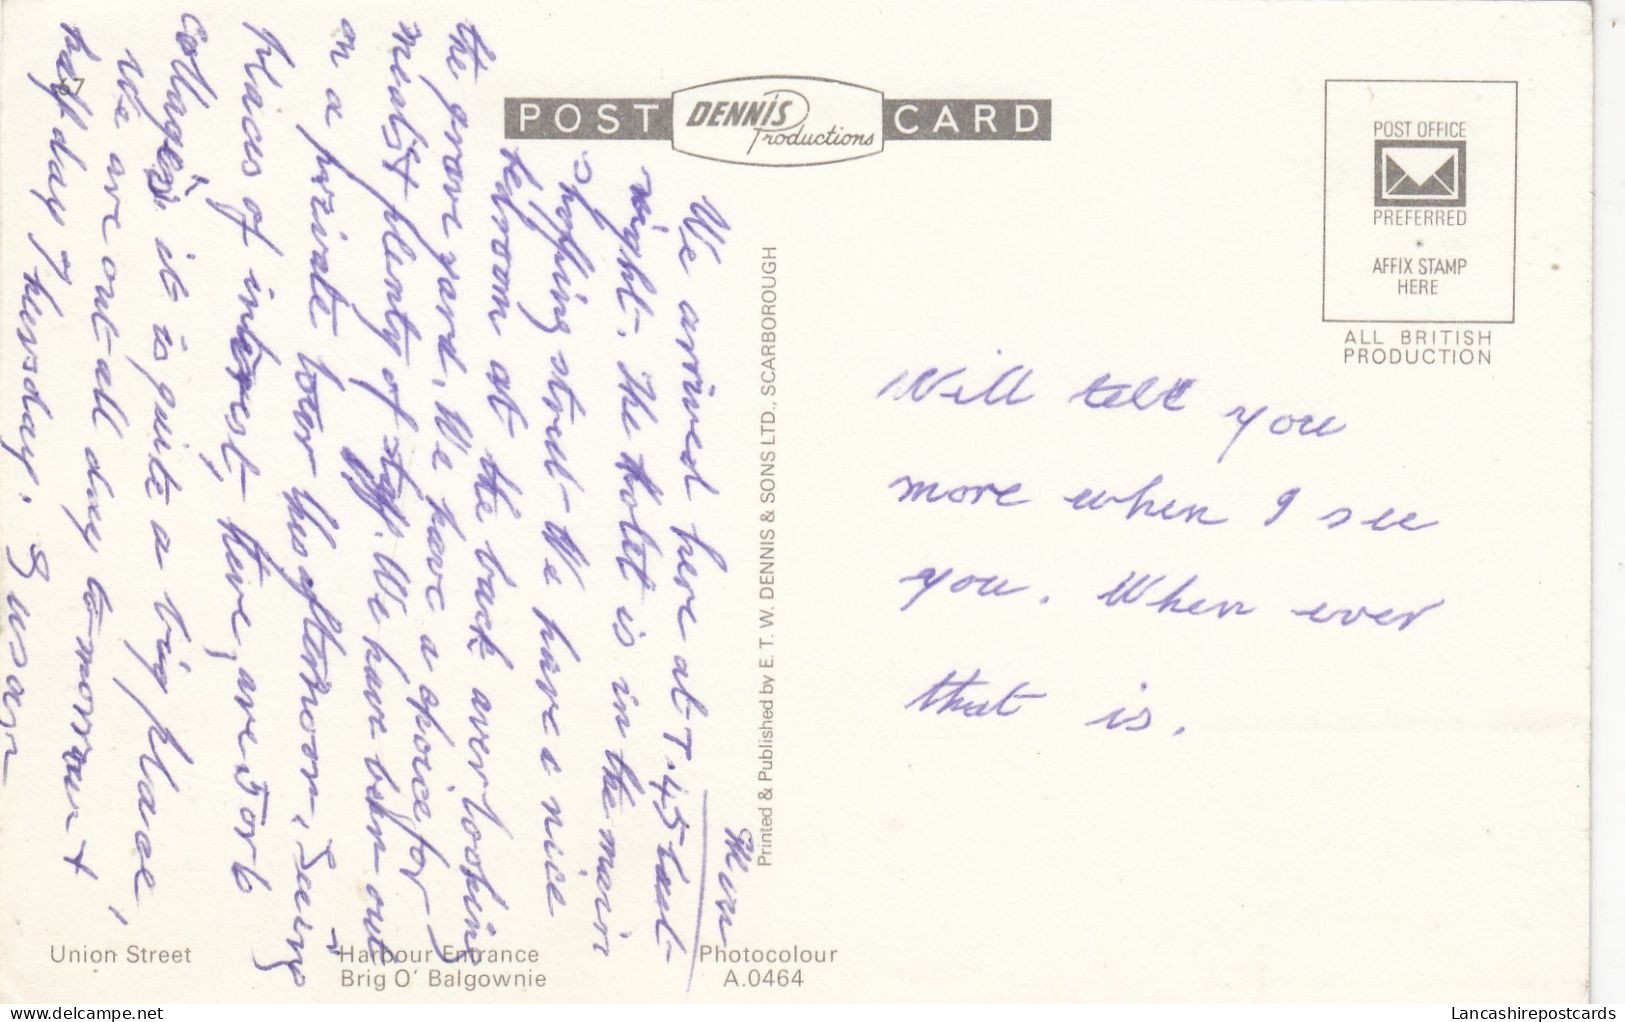 POST DENNIS Productions CARD
POST OFFICE
PREFERRED
AFFIX STAMP
HERE
ALL BRITISH
PRODUCTION
67
Mum
We arrived here at 7.45 last
night. The Hotel is in the main
shopping street. We have a nice
bedroom at the back overlooking
the grave yard. We have a choice for
meals & plenty of staff. We have been out
on a private tour this afternoon, seeing
places of interest, there are 5 or 6
collages, it is quite a big place,
we are out all day to-morrow &
half day Thursday. Susan
Will tell you
more when I see
you. When ever
that is.
Printed & Published by E. T. W. DENNIS & SONS LTD., SCARBOROUGH
Union Street
Harbour Entrance
Brig O' Balgownie
Photocolour
A.0464
Lancashirepostcards